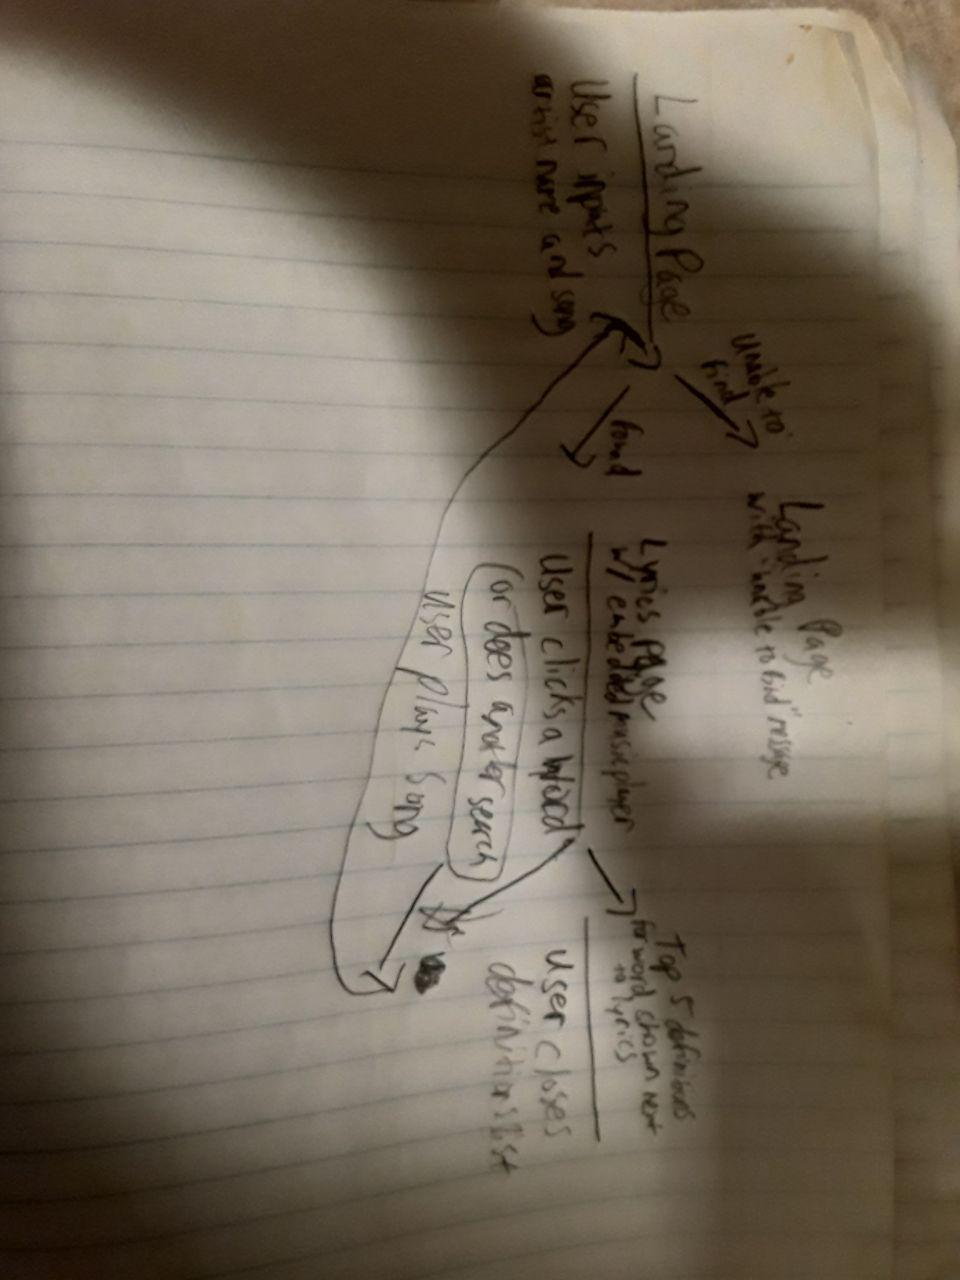 Landing Page
User inputs
artist name and song
Unable to
find
found
Landing Page
with "unable to find" message
Lyrics Page
w/ embedded music player
User clicks a word
(or does another search)
User plays song
Top 5 definitions
for word shown next
to lyrics
User closes
definitions list